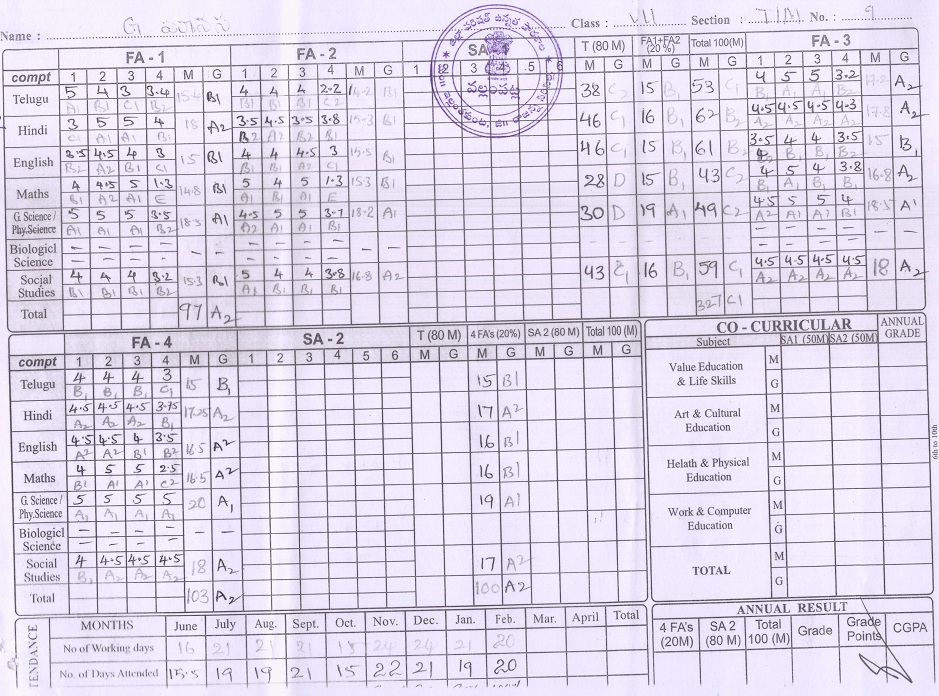 Name : G Class : VII Section : T/M. No. : 9
FA - 1 FA - 2 SA - 1 T (80 M) FA1+FA2 (20 %) Total 100(M) FA - 3
compt 1 2 3 4 M G 1 2 3 4 M G 1 2 3 4 5 6 M G M G M G 1 2 3 4 M G
Telugu 5 4 3 3.4 15.4 B1 4 4 4 2.2 14.2 B1 38 C2 15 B1 53 C2 4 5 5 3.2 17.2 A2
A1 B1 C1 B2 B1 B1 B1 C2 B1 A1 A1 B2
Hindi 3 5 5 4 15 A2 3.5 4.5 3.5 3.8 15.3 B1 46 C1 16 B1 62 B2 4.5 4.5 4.5 4.3 17.8 A2
C1 A1 A1 B1 B2 A2 B2 B1 A2 A2 A2 A2
English 3.5 4.5 4 3 15 B1 4 4 4.5 3 15.5 B1 46 C1 15 B1 61 B2 3.5 4 4 3.5 15 B1
B2 A2 B1 C1 B1 B1 A2 C1 B2 B1 B1 B2
Maths 4 4.5 5 1.3 14.8 B1 5 4 5 1.3 15.3 B1 28 D 15 B1 43 C2 4 5 4 3.8 16.8 A2
B1 A2 A1 E A1 B1 A1 E B1 A1 B1 B1
G. Science / Phy.Science 5 5 5 3.5 18.5 A1 4.5 5 5 3.7 18.2 A1 30 D 19 A1 49 C2 4.5 5 5 4 18.5 A1
A1 A1 A1 B2 A2 A1 A1 B1 A2 A1 A1 B1
Biologicl Science – – – – – – – – – – – – – – – – – – – – – – – –
Social Studies 4 4 4 3.2 15.3 B1 5 4 4 3.8 16.8 A2 43 C1 16 B1 59 C1 4.5 4.5 4.5 4.5 18 A2
B1 B1 B1 B2 A1 B1 B1 B1 A2 A2 A2 A2
Total 97 A2 327 C1
FA - 4 SA - 2 T (80 M) 4 FA's (20%) SA 2 (80 M) Total 100 (M)
compt 1 2 3 4 M G 1 2 3 4 5 6 M G M G M G M G
Telugu 4 4 4 3 15 B1 15 B1
B1 B1 B1 C1
Hindi 4.5 4.5 4.5 3.75 17.25 A2 17 A2
A2 A2 A2 B1
English 4.5 4.5 4 3.5 16.5 A2 16 B1
A2 A2 B1 B2
Maths 4 5 5 2.5 16.5 A2 16 B1
B1 A1 A1 C2
G. Science / Phy.Science 5 5 5 5 20 A1 19 A1
A1 A1 A1 A1
Biologicl Science – – – – – –
Social Studies 4 4.5 4.5 4.5 18 A2 17 A2
B1 A2 A2 A2
Total 103 A2 100 A2
CO - CURRICULAR ANNUAL GRADE
Subject SA1 (50M) SA2 (50M)
Value Education & Life Skills M G
Art & Cultural Education M G
Helath & Physical Education M G
Work & Computer Education M G
TOTAL M G
6th to 10th
TENDANCE
MONTHS June July Aug. Sept. Oct. Nov. Dec. Jan. Feb. Mar. April Total
No of Working days 16 21 21 21 15 24 24 21 20
No. of Days Attended 15.5 19 19 21 15 22 21 19 20
ANNUAL RESULT
4 FA's (20M) SA 2 (80 M) Total 100 (M) Grade Grade Points CGPA